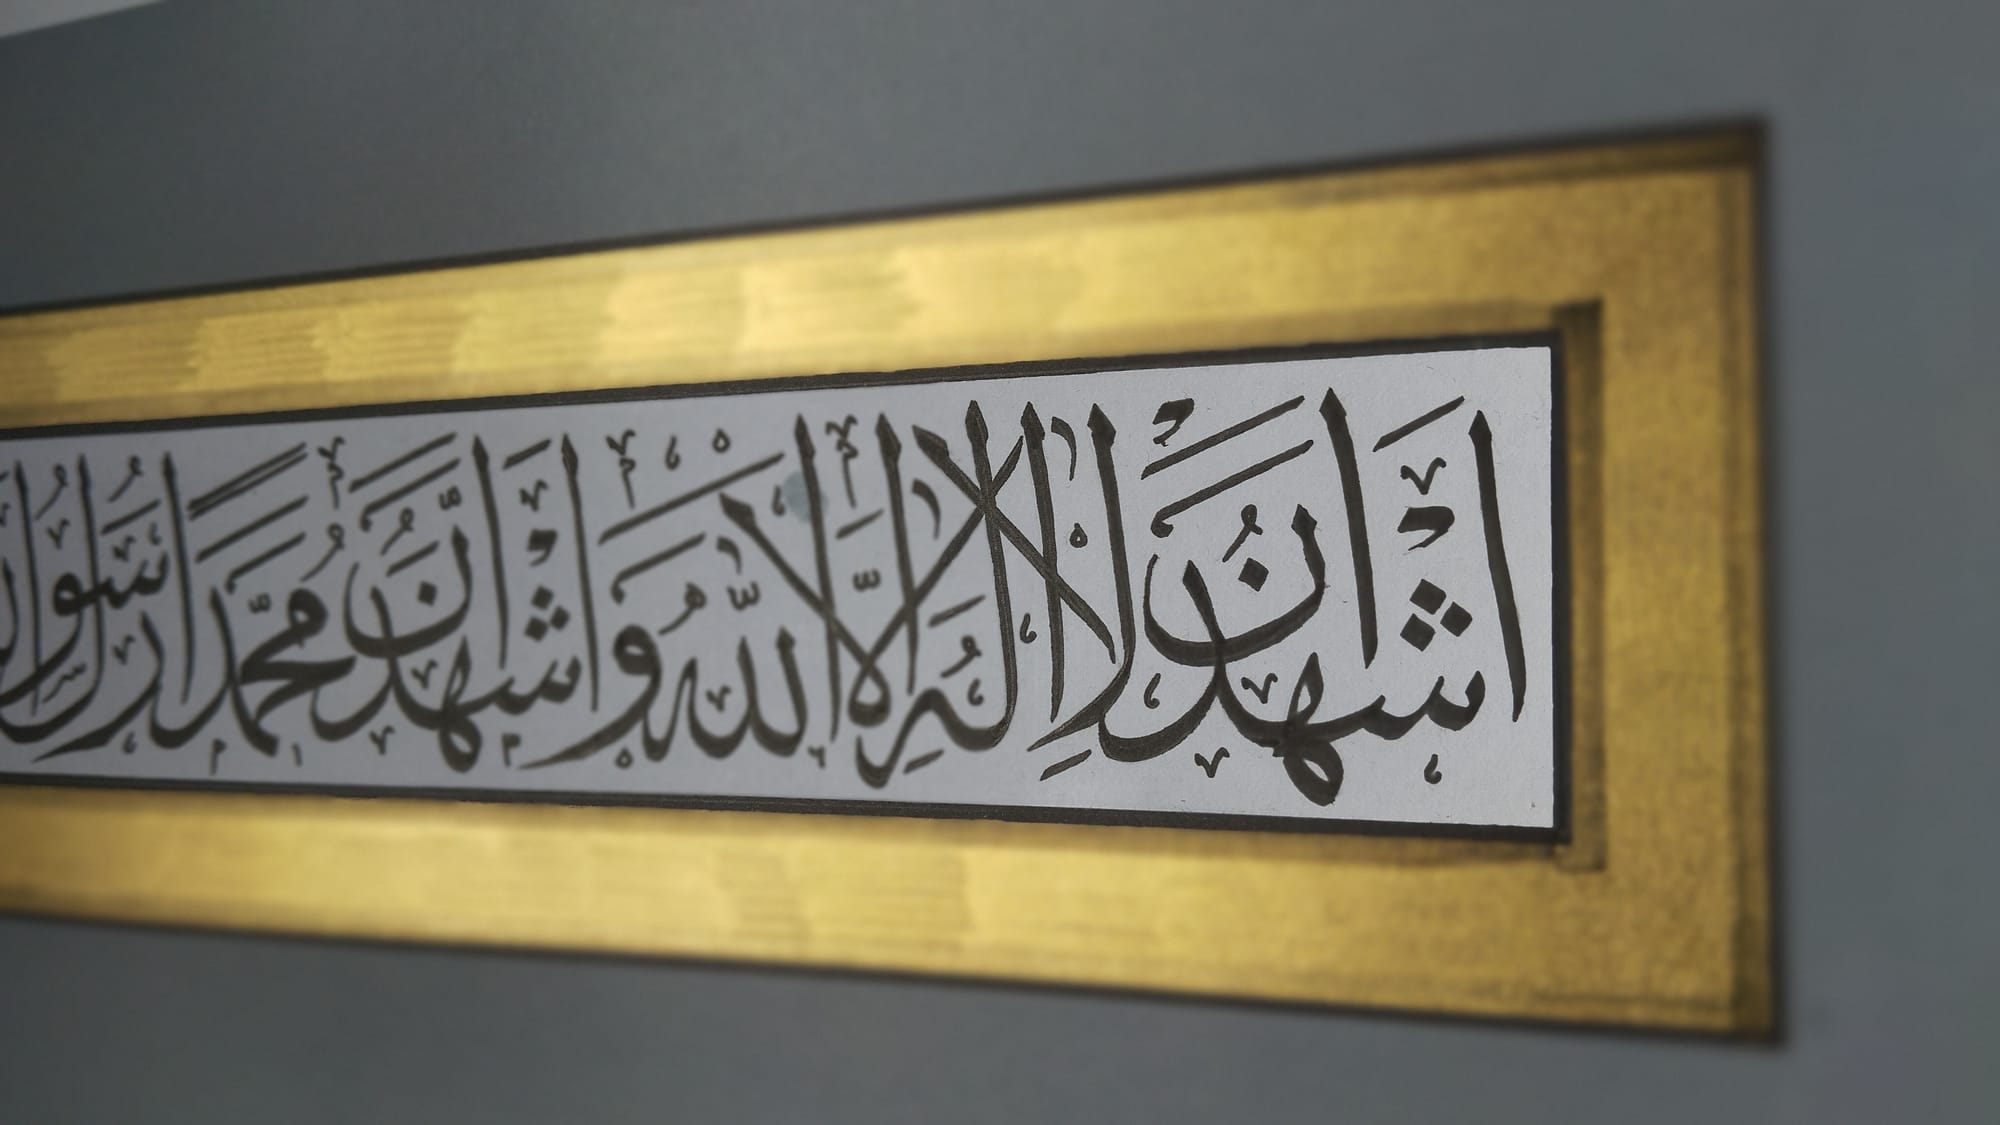 اَشْهَدُ اَنْ لَا اِلٰهَ اِلَّا اللّٰهُ وَاَشْهَدُ اَنَّ مُحَمَّدًا رَسُولُ